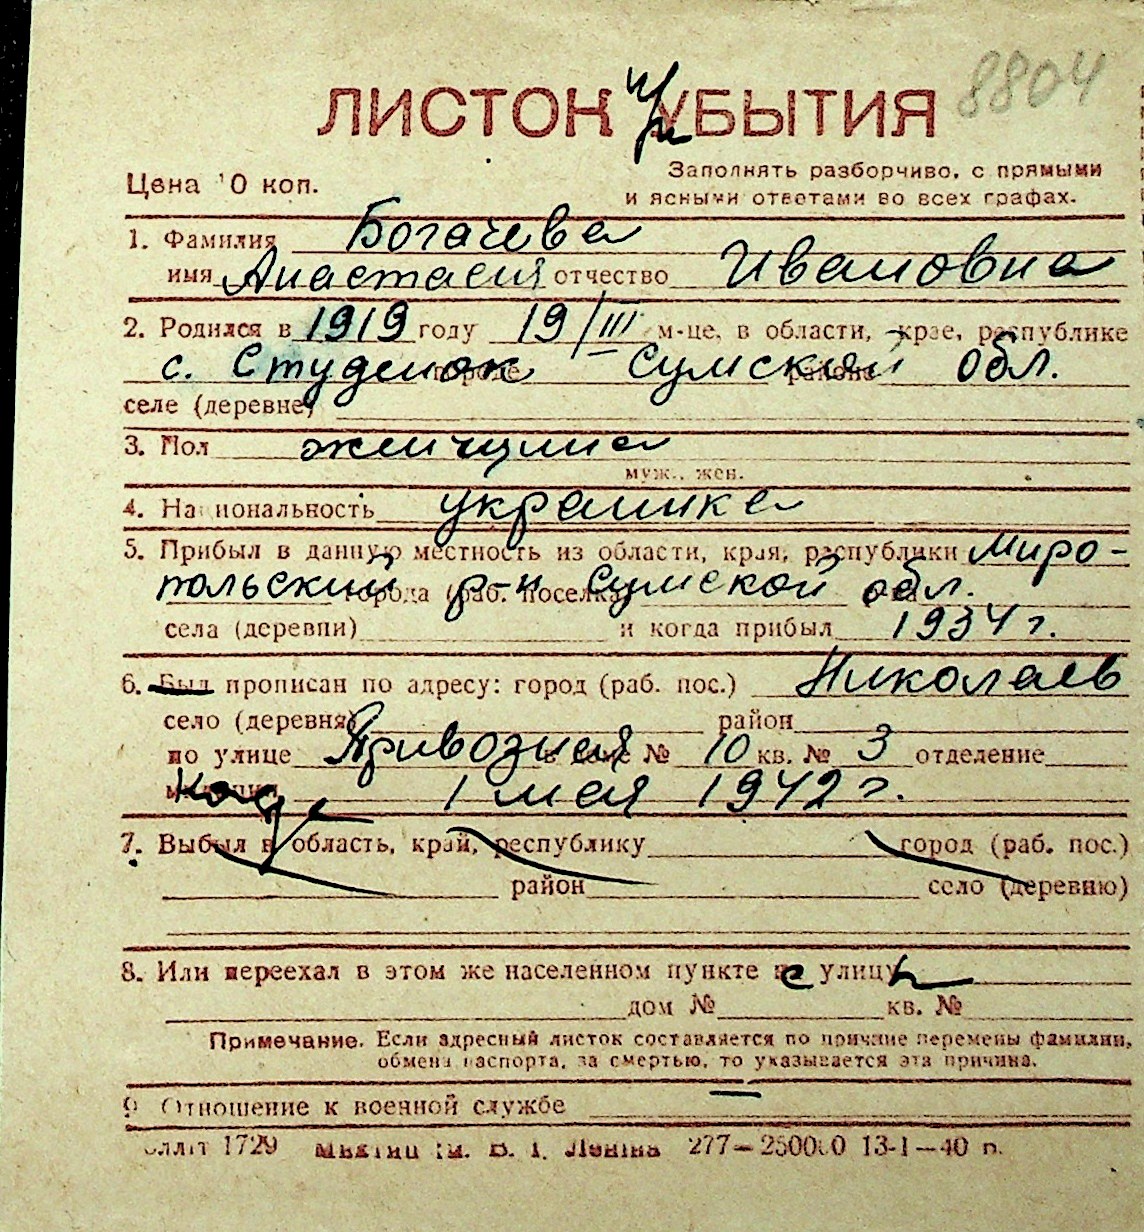 8804
ЛИСТОК УБЫТИЯ
Цена 10 коп.
Заполнять разборчиво, с прямыми
и ясными ответами во всех графах.
1. Фамилия Богачева
имя Анастасия отчество Ивановна
2. Родился в 1919 году 19/III м-це, в области, крае, республике
с. Студенок городе Сумской районе обл.
селе (деревне)
3. Пол женщина
муж., жен.
4. Национальность украинка
5. Прибыл в данную местность из области, края, республики Миро-
польский города (раб. поселка) р-н Сумской обл.
села (деревни) и когда прибыл 1934 г.
6. Был прописан по адресу: город (раб. пос.) Николаев
село (деревня) район
по улице Привозная дом № 10 кв. № 3 отделение
милиции когда 1 мая 1942 г.
7. Выбыл в область, край, республику город (раб. пос.)
район село (деревню)
8. Или переехал в этом же населенном пункте с улицы
дом № кв. №
Примечание. Если адресный листок составляется по причине перемены фамилии,
обмена паспорта, за смертью, то указывается эта причина.
9 Отношение к военной службе —
1729 Ленина 277—250000 13-I—40 р.